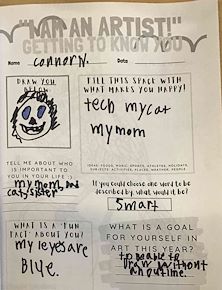 "I AM AN ARTIST!"
GETTING TO KNOW YOU
Name Connor N. Date
DRAW YOU BELOW:
FILL THIS SPACE WITH
WHAT MAKES YOU HAPPY!
tech my cat
my mom
TELL ME ABOUT WHO
IS IMPORTANT TO
YOU IN YOUR LIFE :)
my mom, dad
cat, sister
IDEAS: FOOD, MUSIC, SPORTS, ATHLETES, HOLIDAYS,
SUBJECTS, ACTIVITIES, PLACES, WEATHER, PEOPLE
If you could choose one word to be
described by, what would it be?
Smart
WHAT IS A "FUN
FACT" ABOUT YOU?
my eyes are
Blue.
WHAT IS A GOAL
FOR YOURSELF IN
ART THIS YEAR?
to be able to
Draw without